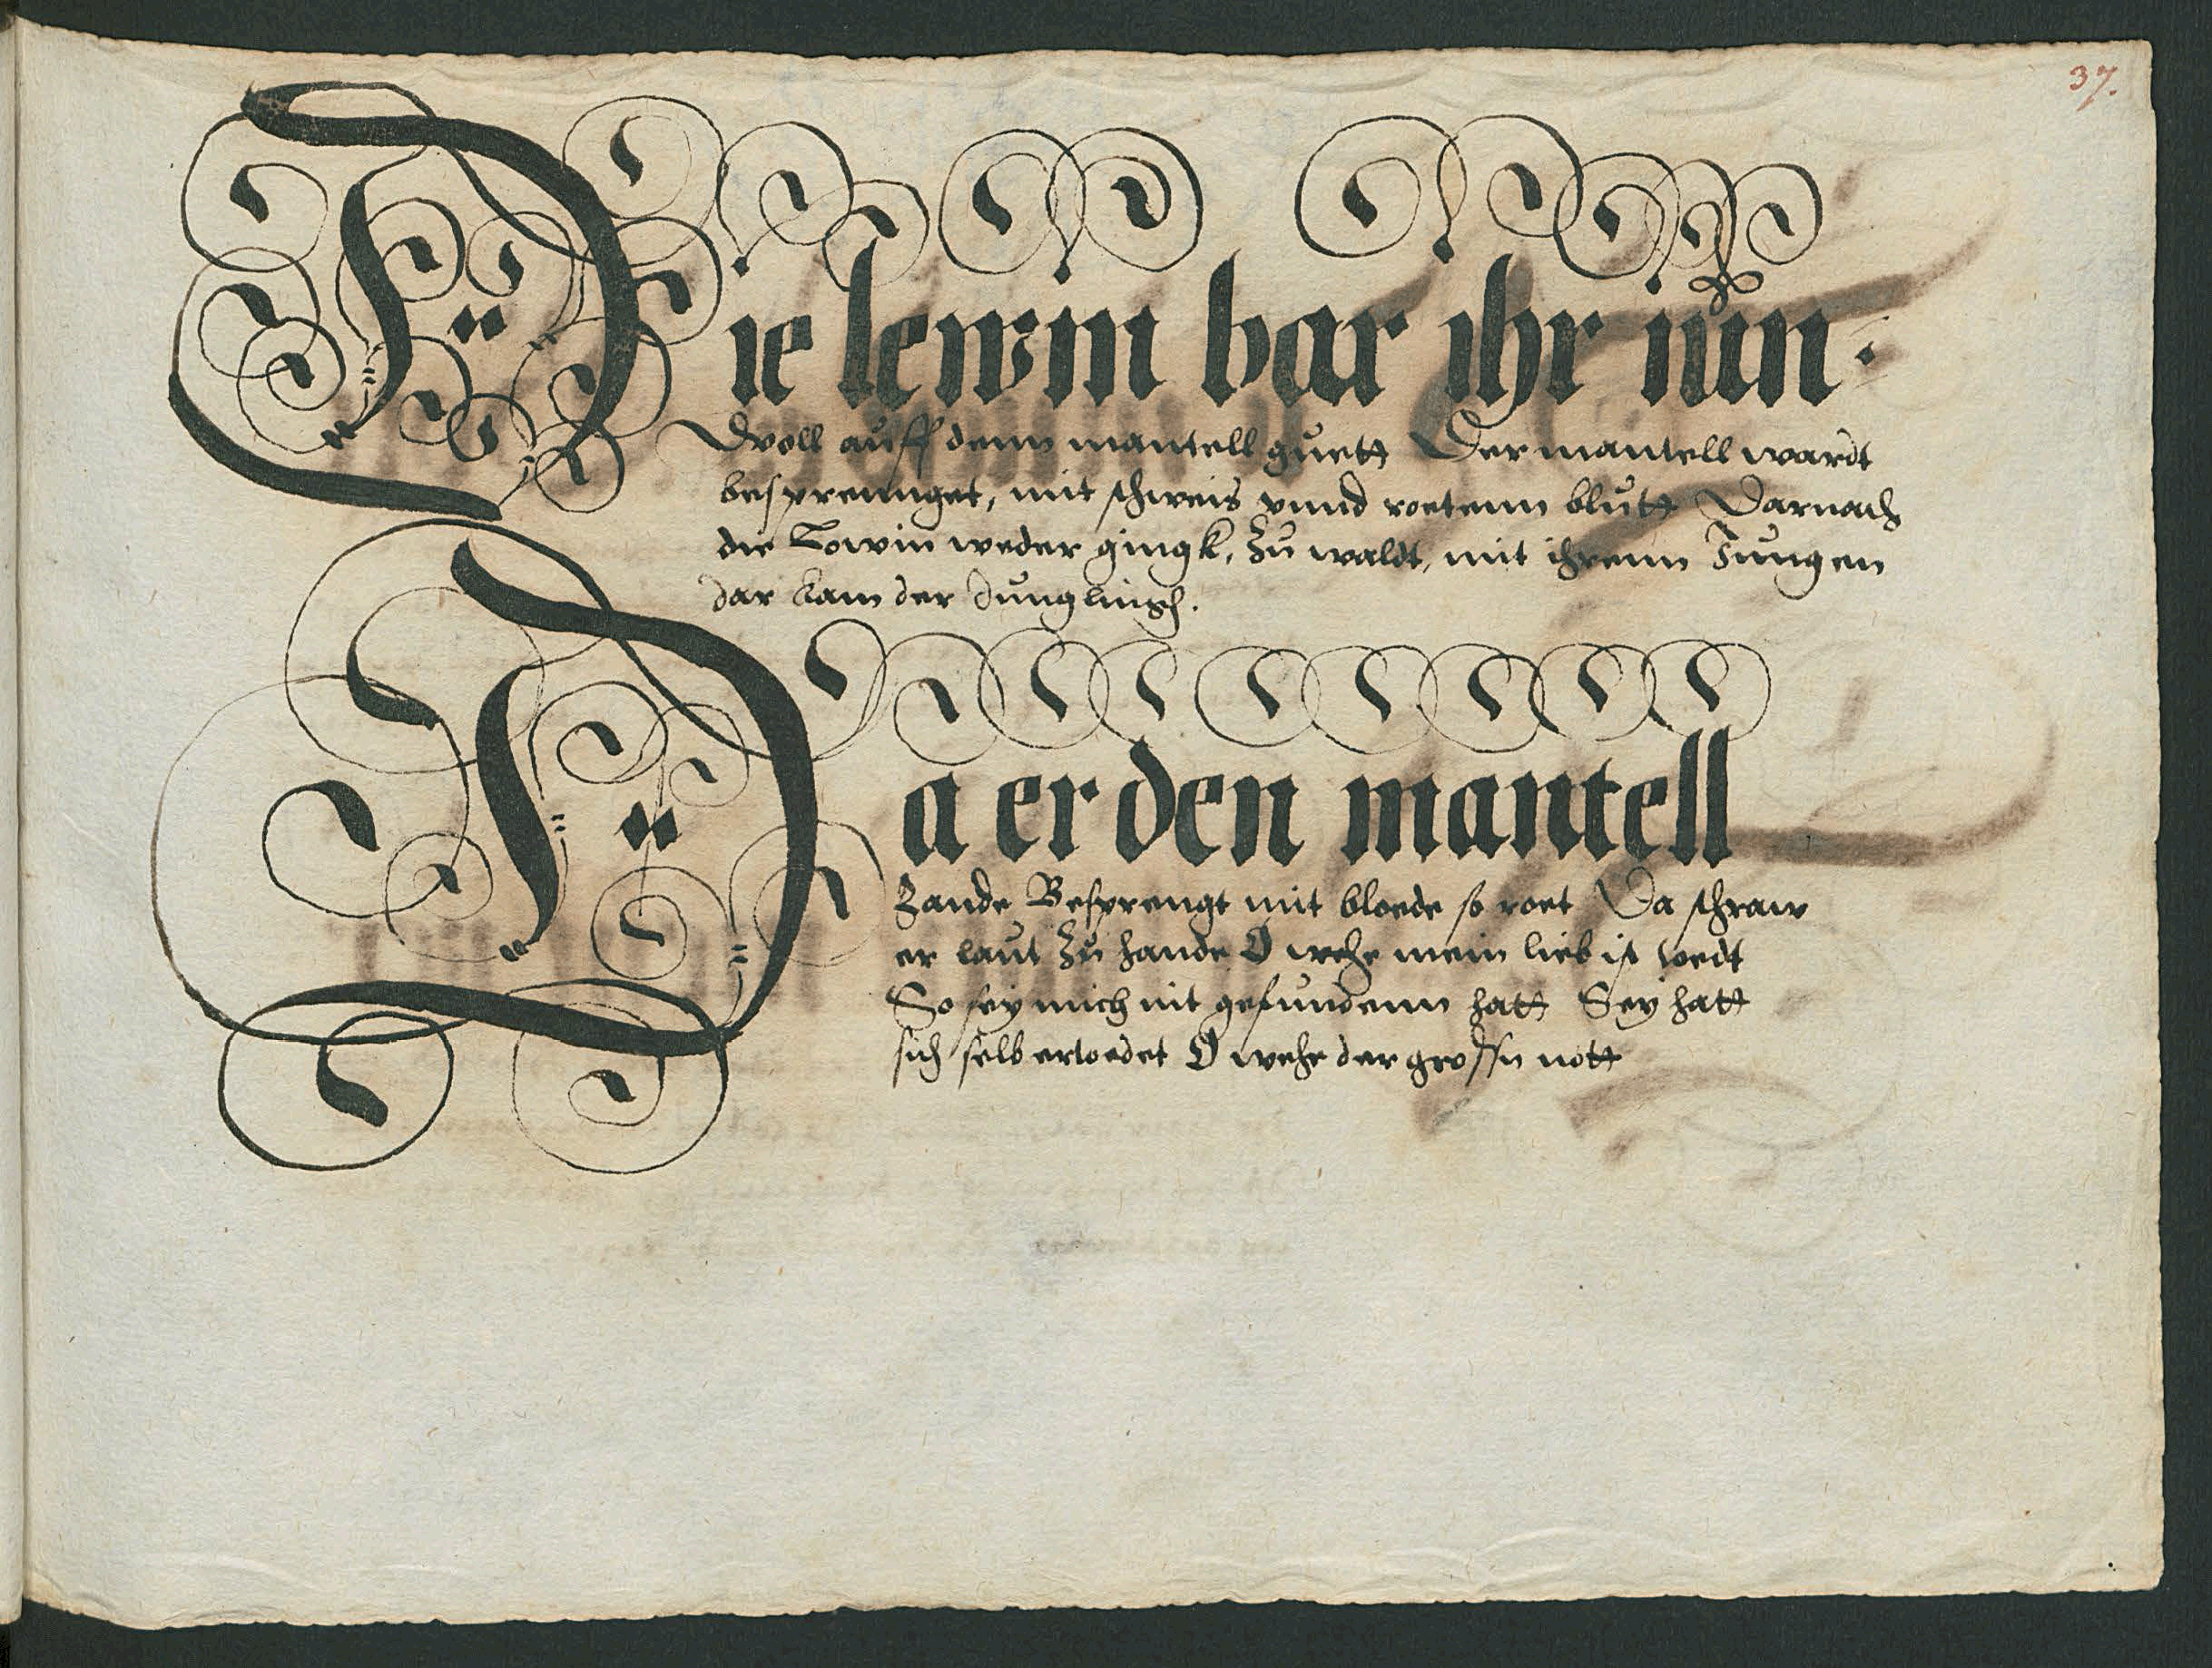 37.
Die lewin bar ihr iun.
Dvoll auff denn mantell guett Der mantell wardt
besprennget, mit schweis vnnd roetenn blutt Darnach
die Lowin weder gingk, zu waldt, mit ihrenn Jungen
dar kam der Junglingh.
Da er den mantell
Fande Besprengt mit bloede so roet Da schraw
er laut zu hande O wehe mein lieb ist toedt
So sey mich nit gefundenn hatt Sey hatt
sich selb ertoedet O wehe der grossn nott